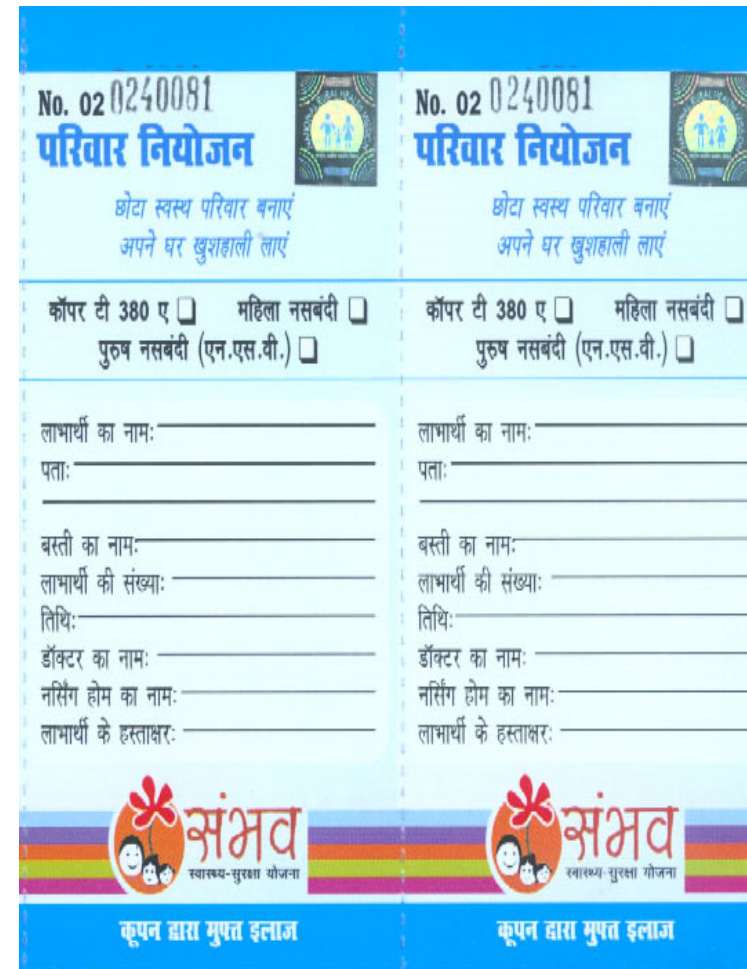 No. 02 0240081
परिवार नियोजन
छोटा स्वस्थ परिवार बनाएं
अपने घर खुशहाली लाएं
कॉपर टी 380 ए महिला नसबंदी
पुरुष नसबंदी (एन.एस.वी.)
लाभार्थी का नामः
पताः
बस्ती का नामः
लाभार्थी की संख्याः
तिथिः
डॉक्टर का नामः
नर्सिंग होम का नामः
लाभार्थी के हस्ताक्षरः
संभव
स्वास्थ्य-सुरक्षा योजना
कूपन द्वारा मुफ्त इलाज
No. 02 0240081
परिवार नियोजन
छोटा स्वस्थ परिवार बनाएं
अपने घर खुशहाली लाएं
कॉपर टी 380 ए महिला नसबंदी
पुरुष नसबंदी (एन.एस.वी.)
लाभार्थी का नामः
पताः
बस्ती का नामः
लाभार्थी की संख्याः
तिथिः
डॉक्टर का नामः
नर्सिंग होम का नामः
लाभार्थी के हस्ताक्षरः
संभव
स्वास्थ्य-सुरक्षा योजना
कूपन द्वारा मुफ्त इलाज